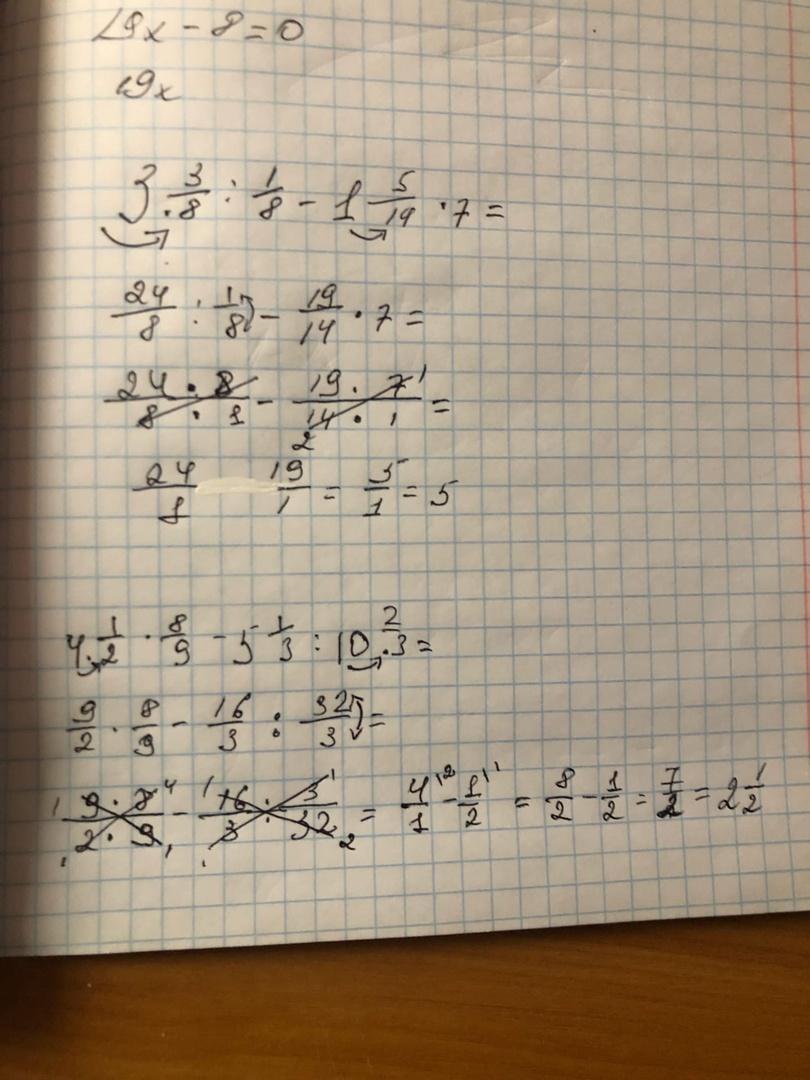 19x - 8 = 0
19x
3 3/8 : 1/8 - 1 5/14 · 7 =
24/8 : 1/8 - 19/14 · 7 =
24 · 8 / 8 · 1 - 19 · 7 1 / 14 2 · 1 =
24/1 19/1 = 5/1 = 5
4 1/2 · 8/9 - 5 1/3 : 10 2/3 =
9/2 · 8/9 - 16/3 : 32/3 =
1 9 · 8 4 / 1 2 · 9 1 - 1 16 · 3 1 / 1 3 · 32 2 = 4/1 \2 - 1/2 \1 = 8/2 - 1/2 = 7/2 = 2 1/2